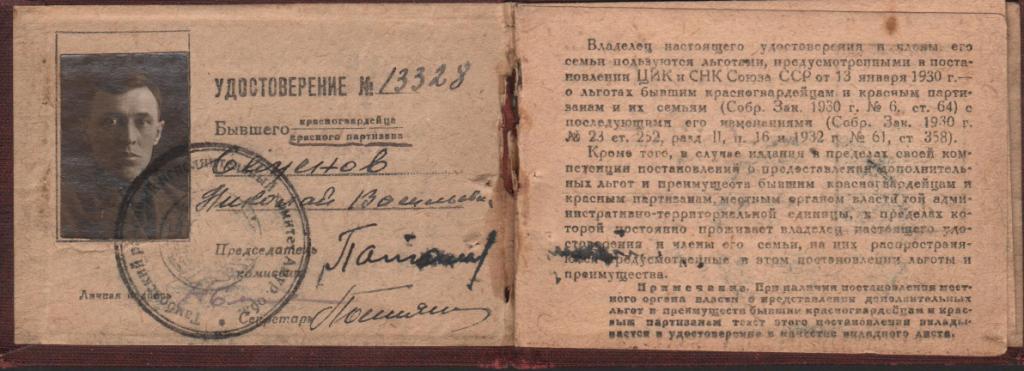 УДОСТОВЕРЕНИЕ № 13328
Бывшего красногвардейца
красного партизана
Николай
Председатель
комиссии
Личная подпись
Секретарь
Владелец настоящего удостоверения и члены его
семьи пользуются льготами, предусмотренными в поста-
новлении ЦИК и СНК Союза ССР от 13 января 1930 г.—
о льготах бывшим красногвардейцам и красным парти-
занам и их семьям (Собр. Зак. 1930 г, № 6, ст. 64) с
последующими его изменениями (Собр. Зак. 1930 г.
№ 23 ст. 252, разд II, п. 16 и 1932 г. № 61, ст. 358).
Кроме того, в случае издания в пределах своей ком-
петенции постановления о предоставлении дополнитель-
ных льгот и преимуществ бывшим красногвардейцам и
красным партизанам, местным органом власти той адми-
нистративно-территориальной единицы, в пределах ко-
торой постоянно проживает владелец настоящего удо-
стоверения и члены его семьи, на них распространя-
ются предусмотренные в этом постановлении льготы и
преимущества.
Примечание. При наличии постановления мест-
ного органа власти о предоставлении дополнительных
льгот и преимуществ бывшим красногвардейцам и крас-
ным партизанам текст этого постановления вклады-
вается в удостоверение в качестве вкладного листа.